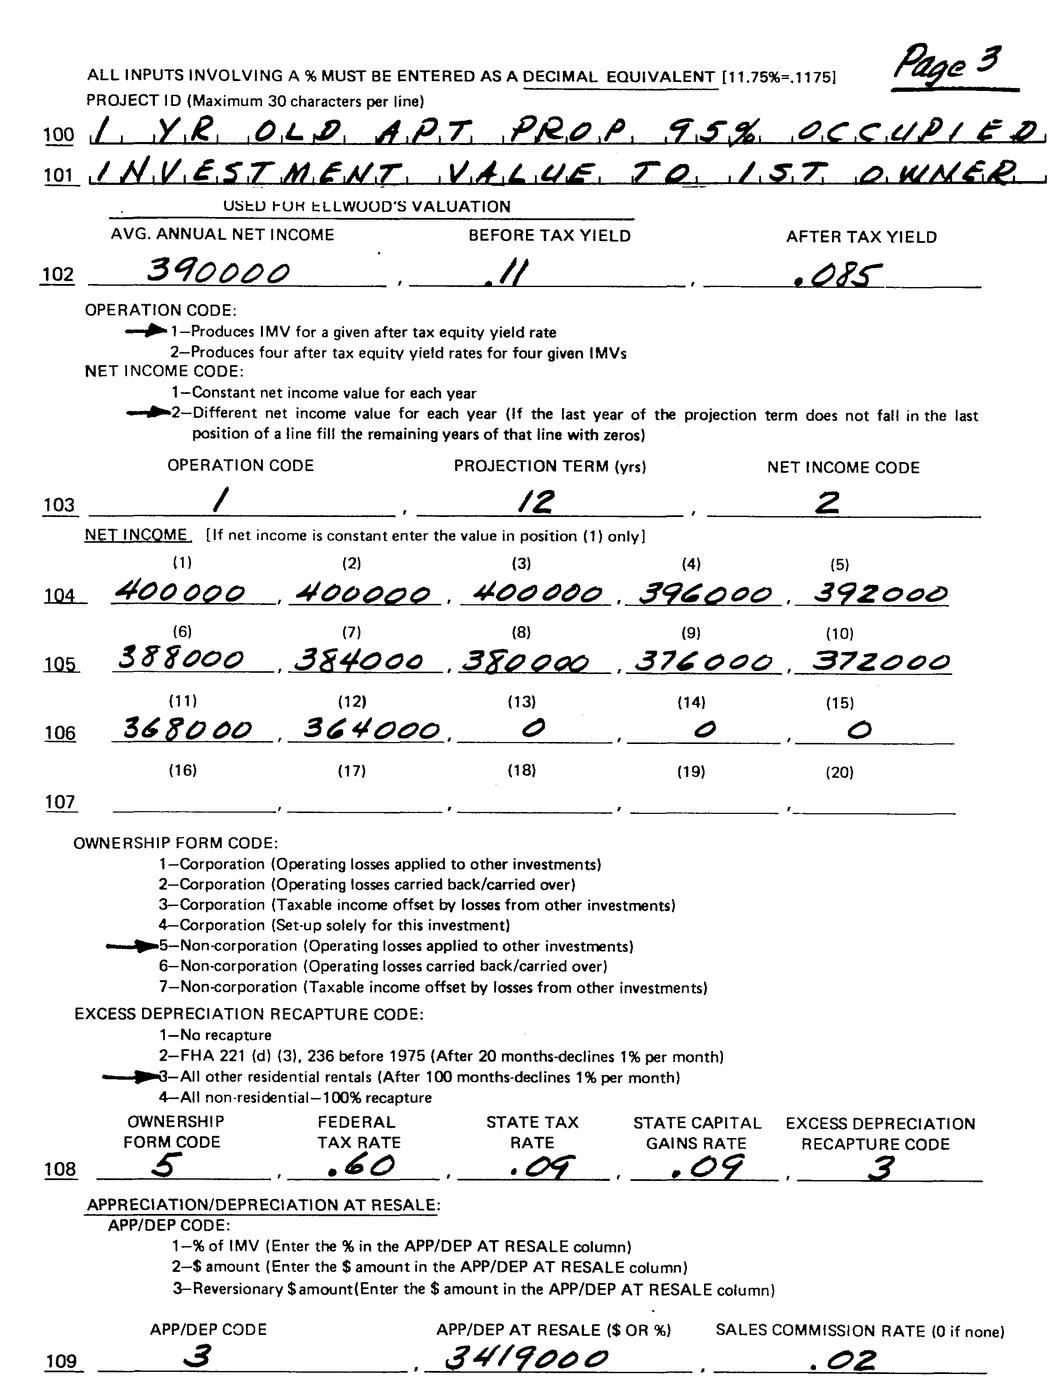 Page 3
ALL INPUTS INVOLVING A % MUST BE ENTERED AS A DECIMAL EQUIVALENT [11.75%=.1175]
PROJECT ID (Maximum 30 characters per line)
100 1 YR OLD APT PROP 95% OCCUPIED
101 INVESTMENT VALUE TO 1ST OWNER
USED FOR ELLWOOD'S VALUATION
AVG. ANNUAL NET INCOME BEFORE TAX YIELD AFTER TAX YIELD
102 390000 , .11 , .085
OPERATION CODE:
1—Produces IMV for a given after tax equity yield rate
2—Produces four after tax equity yield rates for four given IMVs
NET INCOME CODE:
1—Constant net income value for each year
2—Different net income value for each year (If the last year of the projection term does not fall in the last
position of a line fill the remaining years of that line with zeros)
OPERATION CODE PROJECTION TERM (yrs) NET INCOME CODE
103 1 , 12 , 2
NET INCOME [If net income is constant enter the value in position (1) only]
(1) (2) (3) (4) (5)
104 400000 , 400000 , 400000 , 396000 , 392000
(6) (7) (8) (9) (10)
105 388000 , 384000 , 380000 , 376000 , 372000
(11) (12) (13) (14) (15)
106 368000 , 364000 , 0 , 0 , 0
(16) (17) (18) (19) (20)
107 , , , ,
OWNERSHIP FORM CODE:
1—Corporation (Operating losses applied to other investments)
2—Corporation (Operating losses carried back/carried over)
3—Corporation (Taxable income offset by losses from other investments)
4—Corporation (Set-up solely for this investment)
5—Non-corporation (Operating losses applied to other investments)
6—Non-corporation (Operating losses carried back/carried over)
7—Non-corporation (Taxable income offset by losses from other investments)
EXCESS DEPRECIATION RECAPTURE CODE:
1—No recapture
2—FHA 221 (d) (3), 236 before 1975 (After 20 months-declines 1% per month)
3—All other residential rentals (After 100 months-declines 1% per month)
4—All non-residential—100% recapture
OWNERSHIP FEDERAL STATE TAX STATE CAPITAL EXCESS DEPRECIATION
FORM CODE TAX RATE RATE GAINS RATE RECAPTURE CODE
108 5 , .60 , .09 , .09 , 3
APPRECIATION/DEPRECIATION AT RESALE:
APP/DEP CODE:
1—% of IMV (Enter the % in the APP/DEP AT RESALE column)
2—$ amount (Enter the $ amount in the APP/DEP AT RESALE column)
3—Reversionary $ amount(Enter the $ amount in the APP/DEP AT RESALE column)
APP/DEP CODE APP/DEP AT RESALE ($ OR %) SALES COMMISSION RATE (0 if none)
109 3 , 3419000 , .02